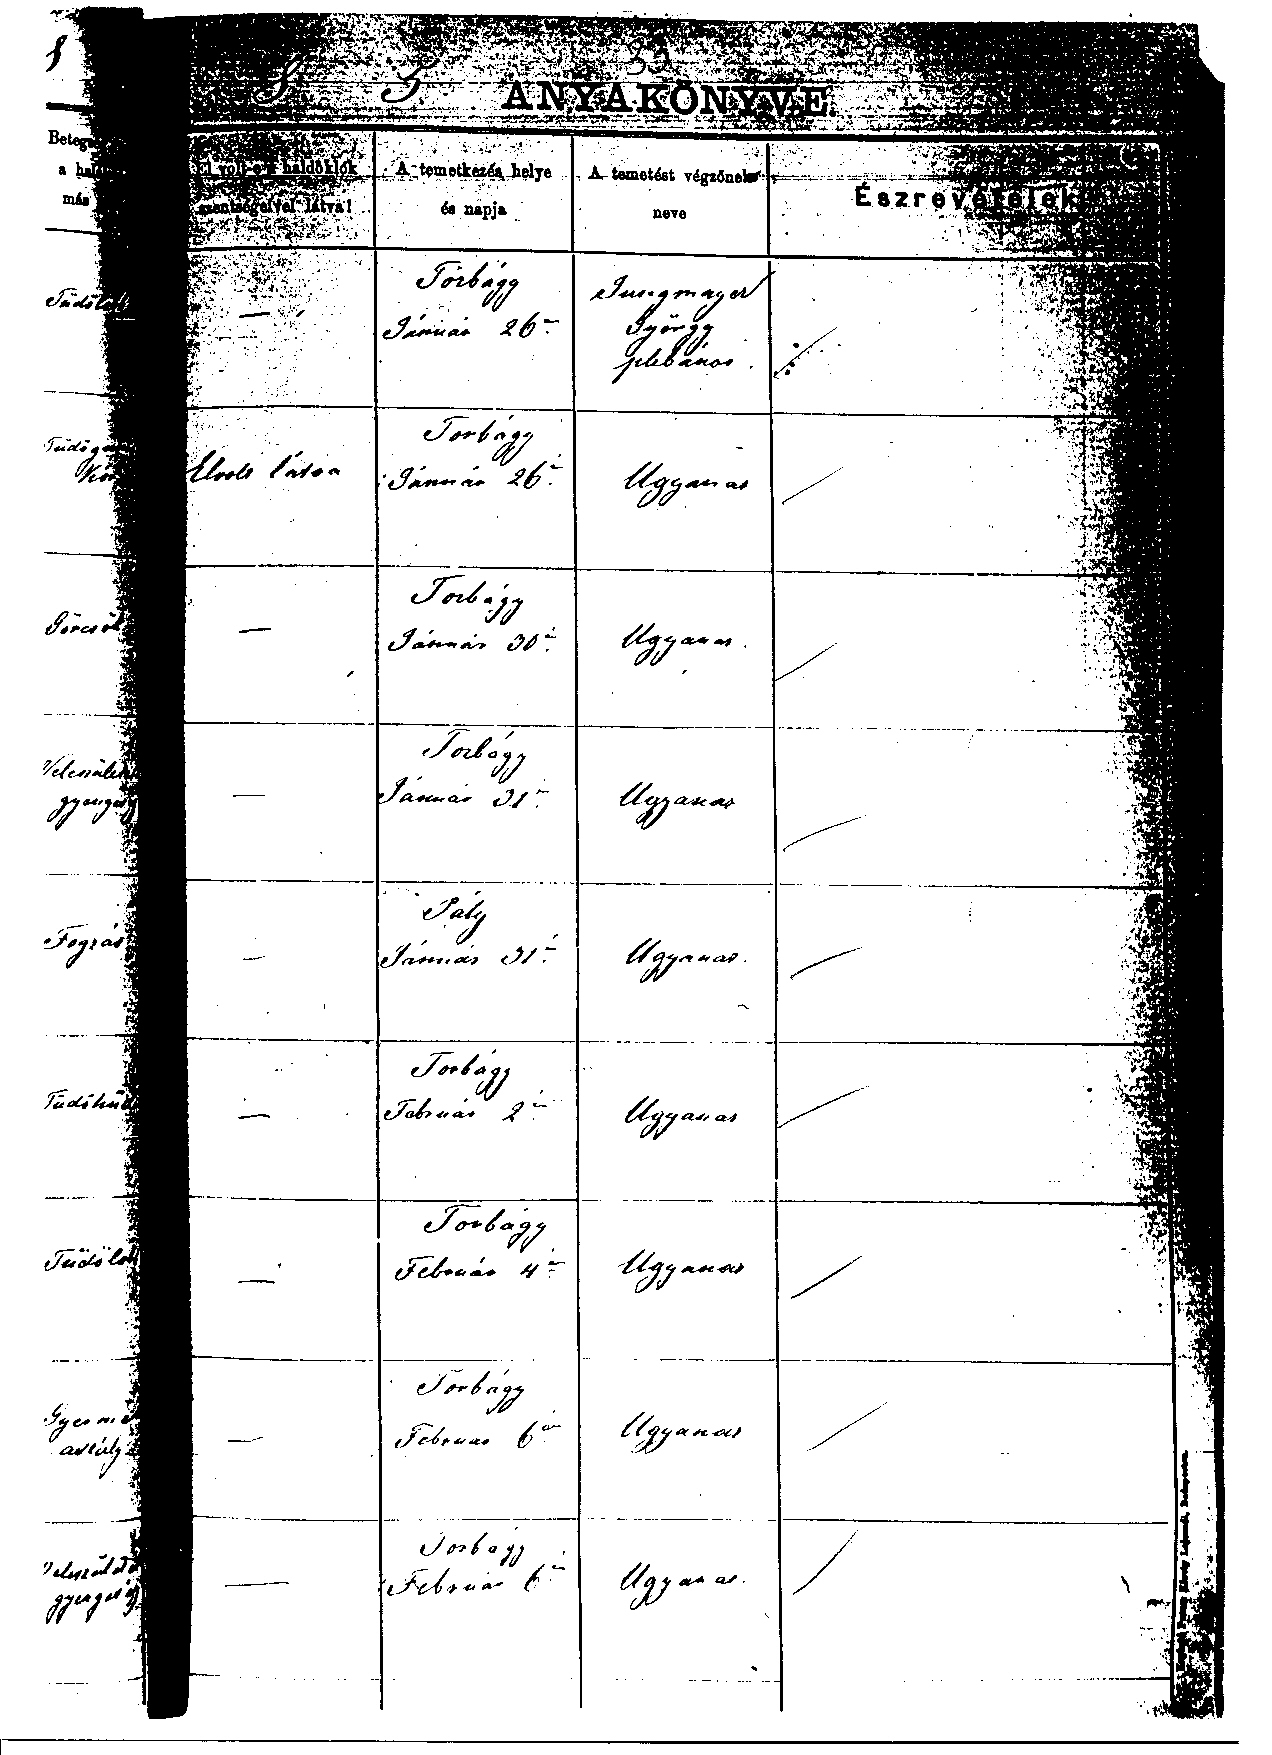 33
ANYAKÖNYVE.
Beteg
a hal
más
haldoklók
szentségeivel látva?
A temetkezés helye
és napja
A temetést végzőnek
neve
Észrevételek
Tüdőlob
—
Torbágy
Január 26án
Jungmayer
György
plebános.
Elvolt látva
Torbágy
Január 26án
Ugyanaz
Görcsök
—
Torbágy
Január 30án
Ugyanaz.
Veleszület
gyengeség
—
Torbágy
Január 31én
Ugyanaz
Fogzás
—
Páty
Január 31én
Ugyanaz.
—
Torbágy
Február 2án
Ugyanaz
Tüdőlob
—
Torbágy
Február 4én
Ugyanaz
—
Torbágy
Február 6án
Ugyanaz
Veleszületett
gyengeség
—
Torbágy
Február 6án
Ugyanaz.